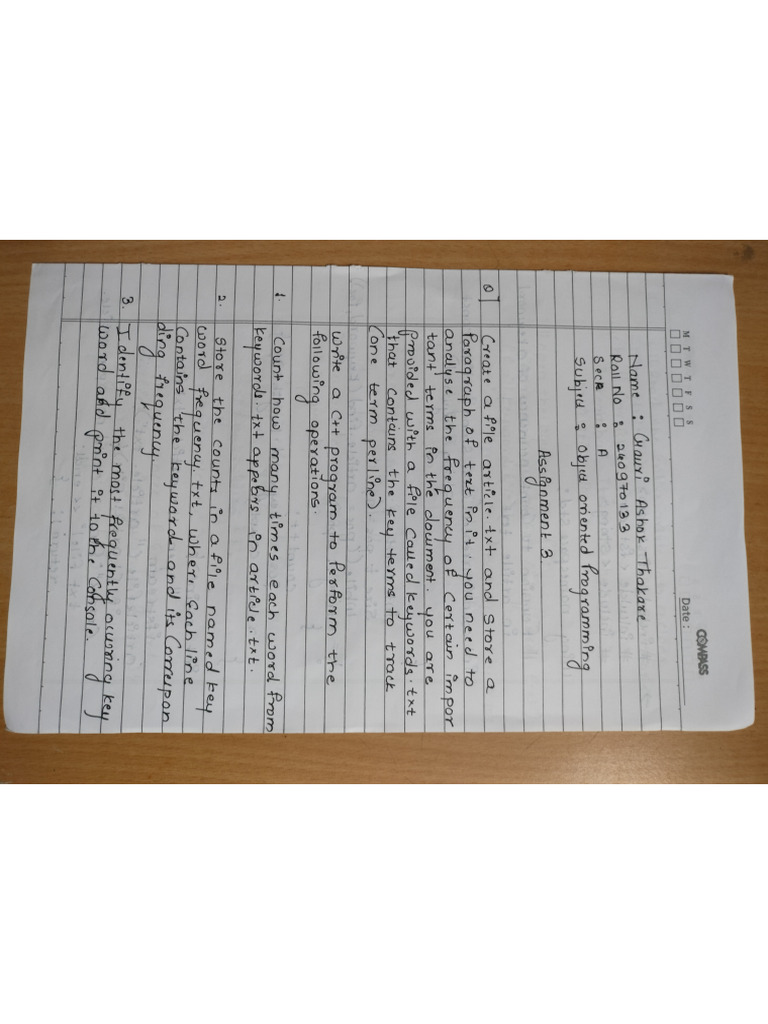 COMPASS
M T W T F S S
Date :
Name : Gauri Ashok Thakare
Roll No : 240970133
Secn : A
Subject : Object oriented Programming
Assignment 3
Q] Create a file article.txt and store a
Paragraph of text in it. you need to
analyse the frequency of certain impor
tant terms in the document. you are
provided with a file called keywords.txt
that contains the key terms to track
(one term per line).
write a C++ program to Perform the
following operations.
1. Count how many times each word from
keywords.txt appears in article.txt.
2. Store the counts in a file named key
word frequency.txt, where each line
Contains the keyword and its Correspon
ding frequency.
3. Identify the most frequently occuring key
word and print it to the Console.